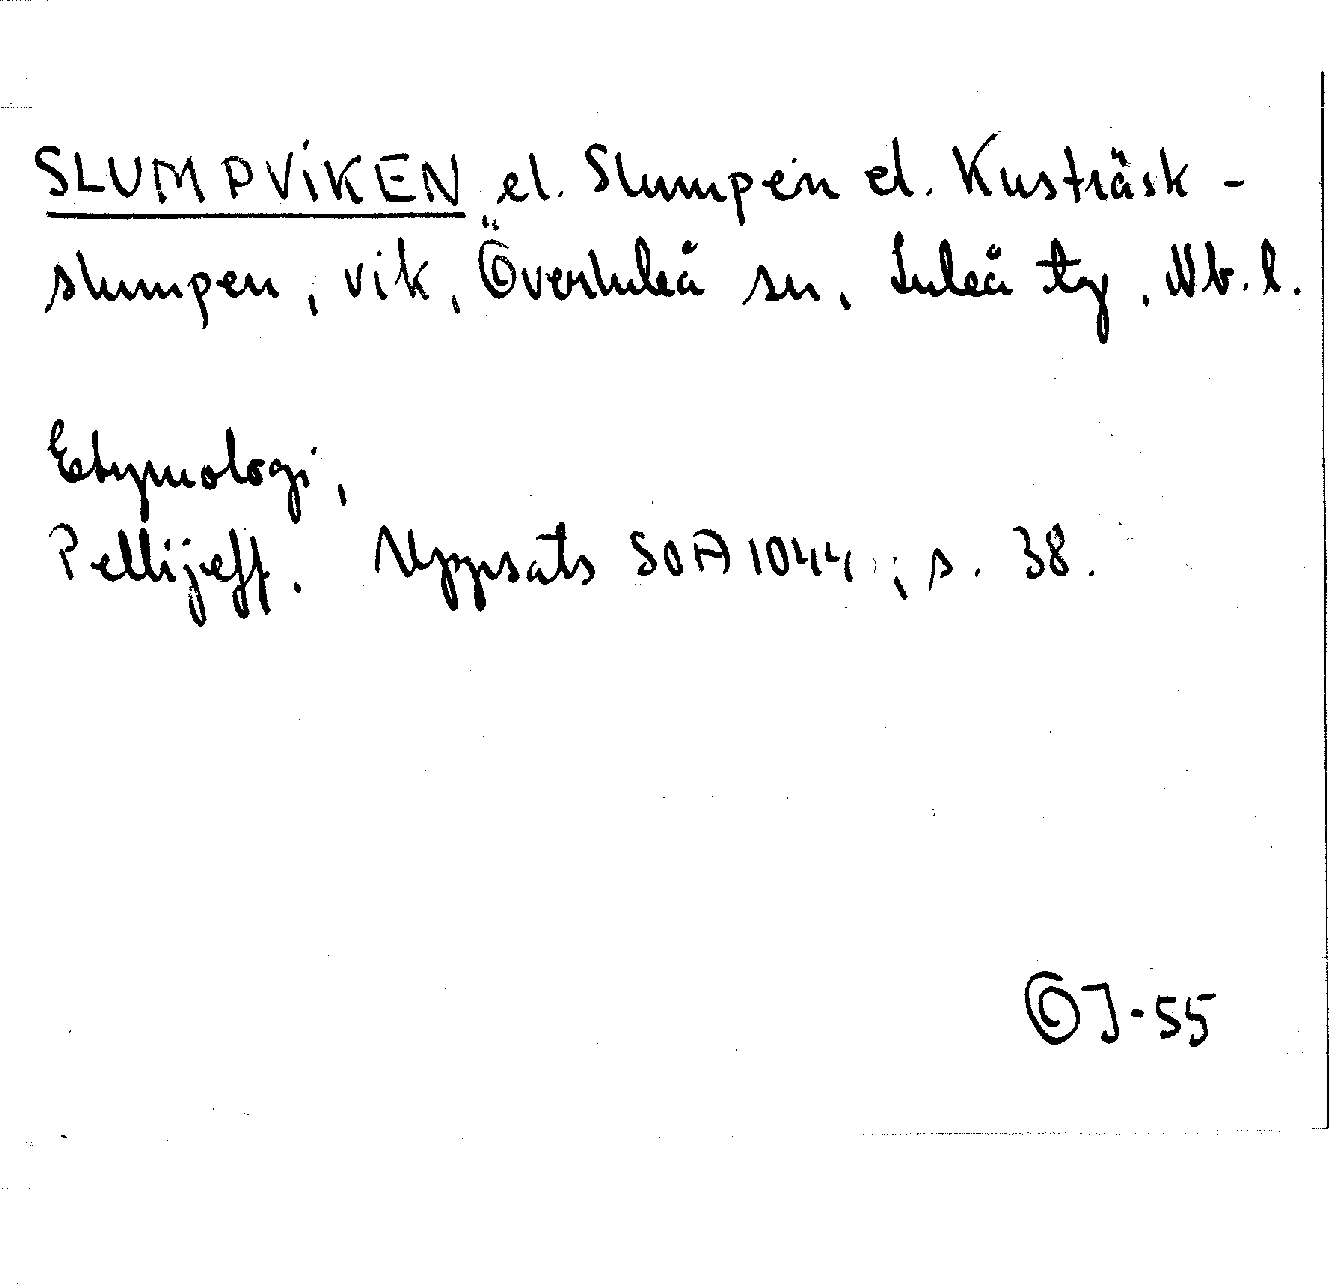 SLUMPVIKEN el. Slumpen el. Kusträsk-
slumpen, vik, Överluleå sn, Luleå tg, Nb. l.
Etymologi,
Pellijeff. Uppsats SOA 1044, s. 38.
ÖJ-55